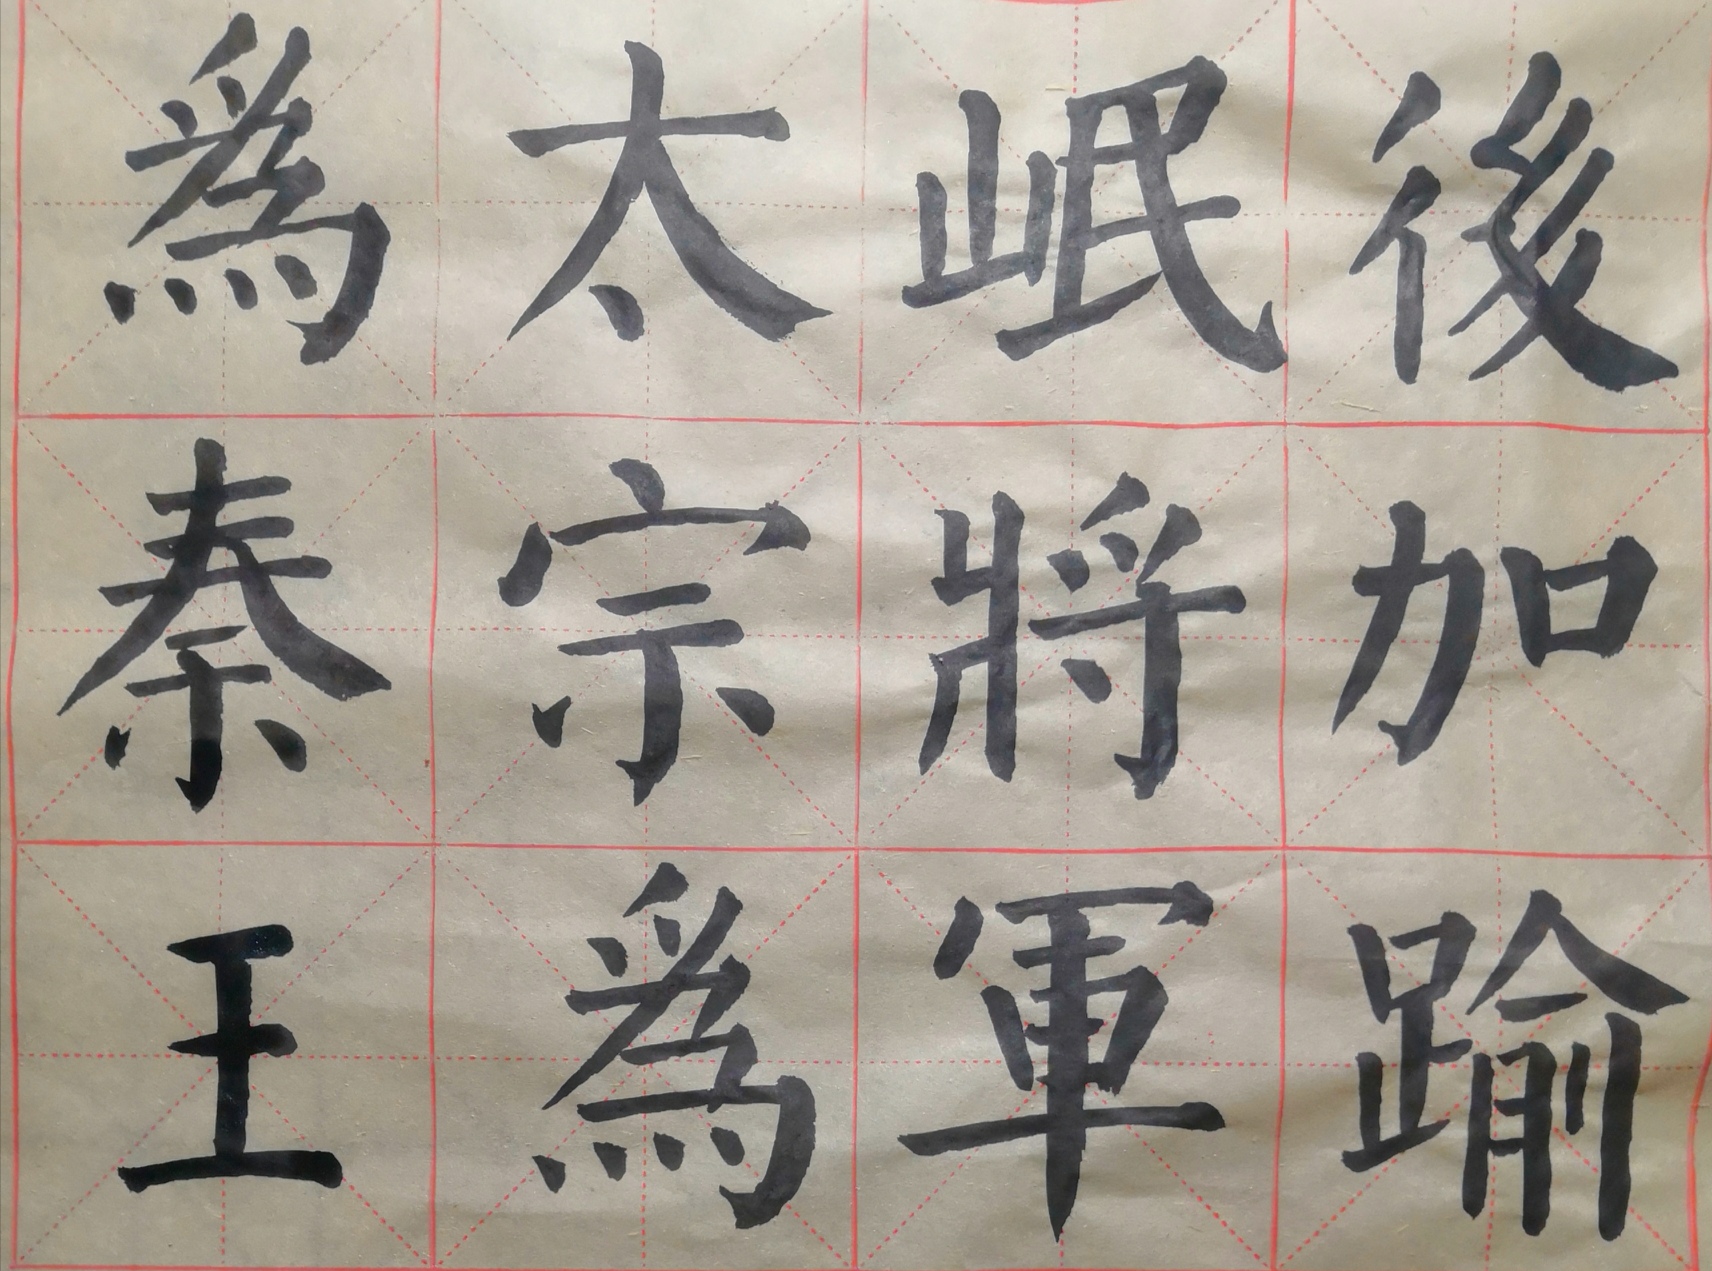 後加踰
岷將軍
太宗為
為秦王